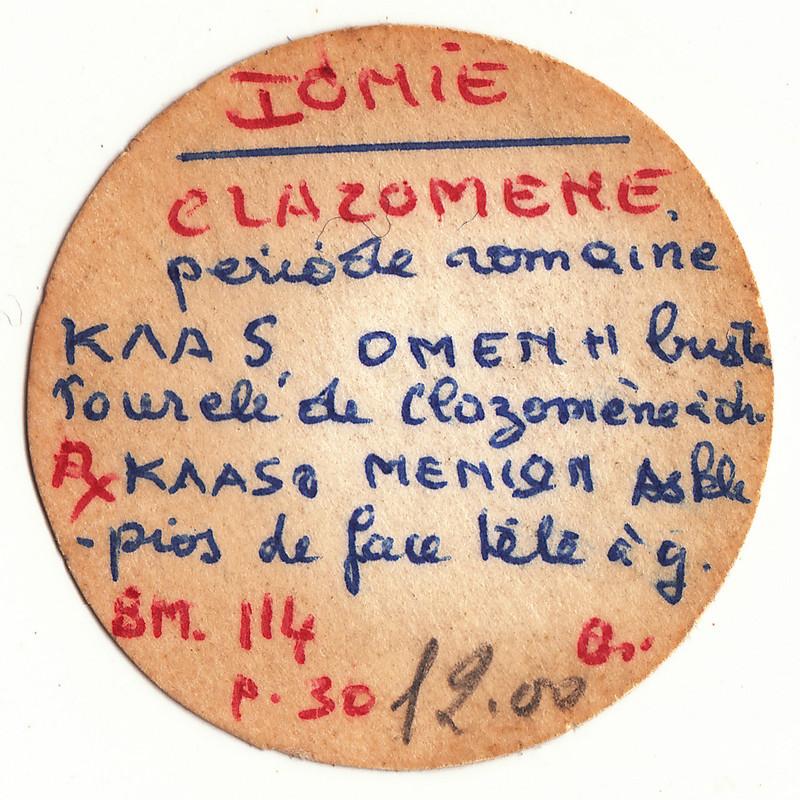 IOMIE
CLAZOMENE.
période romaine
ΚΛΑ S. OMENH buste
Tourelé de Clazomène à dr.
Rx ΚΛΑSO MENIΩN Askle
-pios de face tête à g.
BM. 114 Br.
P. 30 12.00